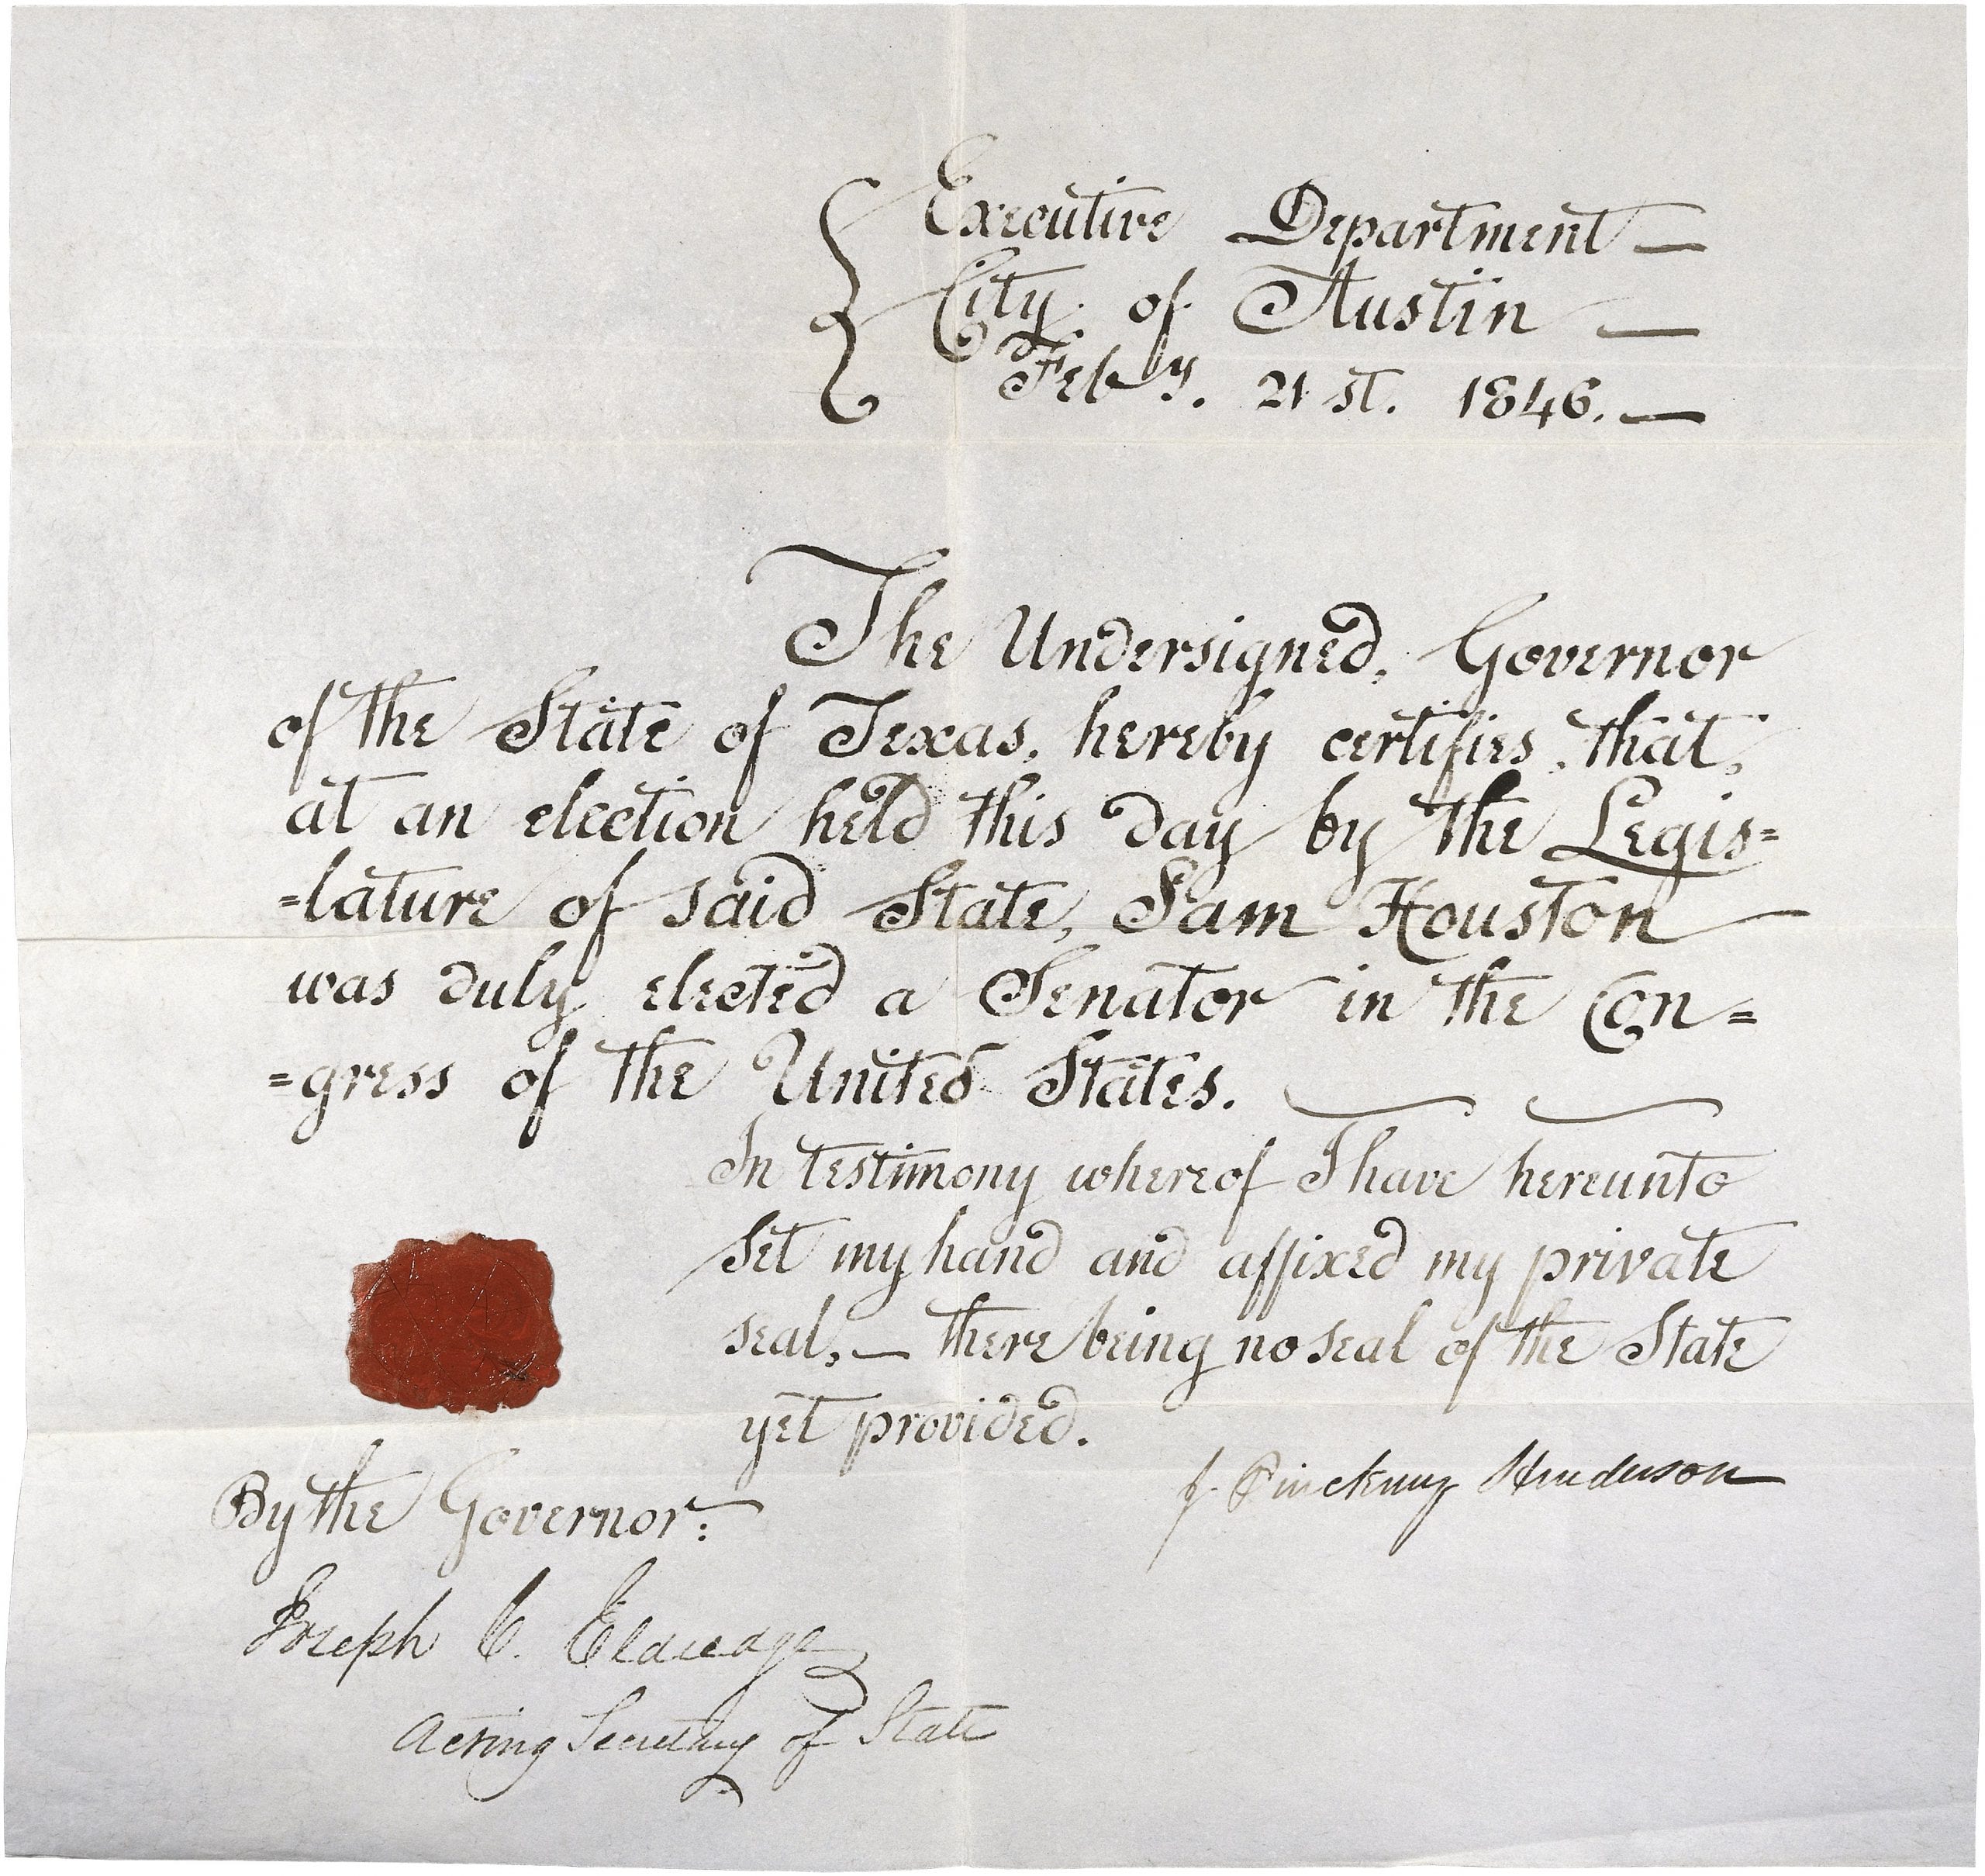 Executive Department —
City of Austin —
Feby. 21st. 1846. —
The Undersigned, Governor
of the State of Texas, hereby certifies, that,
at an election held this day by the Legis=
=lature of said State, Sam Houston
was duly elected a Senator in the Con=
=gress of the United States.
In testimony whereof I have hereunto
set my hand and affixed my private
seal, — there being no seal of the State
yet provided.
J. Pinckney Henderson
By the Governor:
Joseph C. Eldredge
Acting Secretary of State